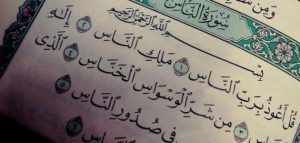 وَمِن
سُورَةُ النَّاسِ
بِسْمِ ٱللَّهِ ٱلرَّحْمَٰنِ ٱلرَّحِيمِ
قُلْ أَعُوذُ بِرَبِّ ٱلنَّاسِ ١ مَلِكِ ٱلنَّاسِ ٢ إِلَٰهِ
ٱلنَّاسِ ٣ مِن شَرِّ ٱلْوَسْوَاسِ ٱلْخَنَّاسِ ٤ ٱلَّذِى
فِى صُدُورِ ٱلنَّاسِ ٥